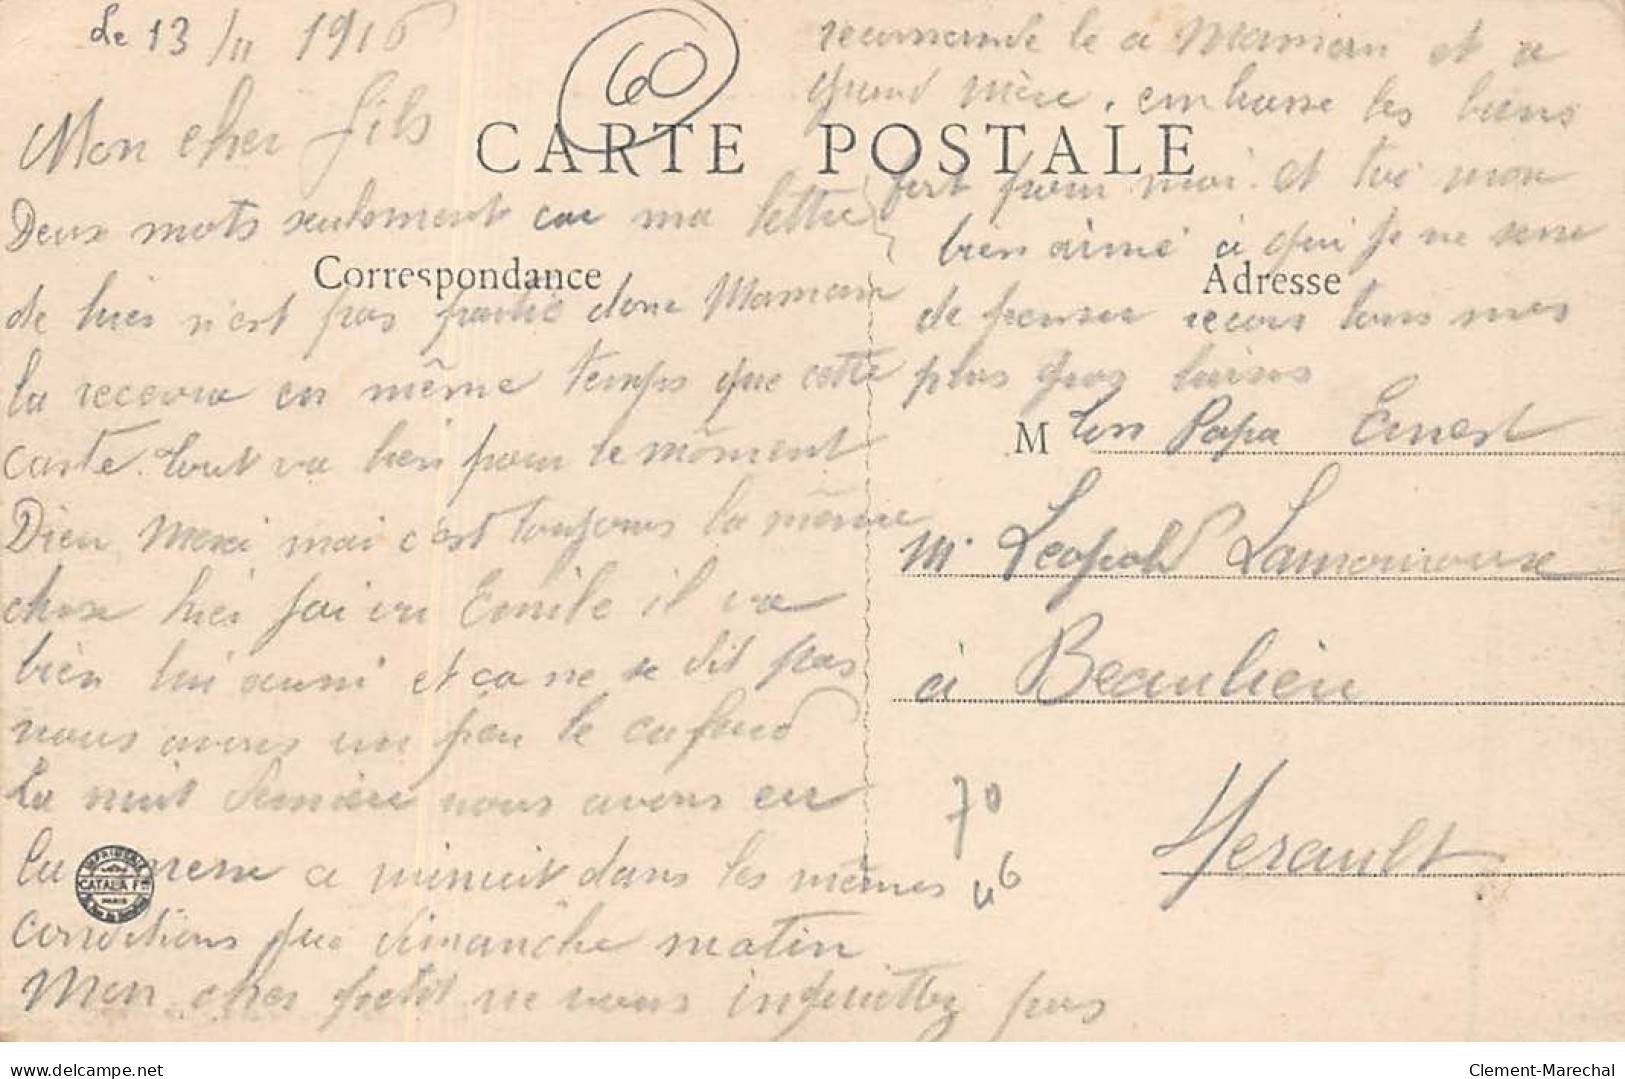 Le 13/11 1916
60
CARTE POSTALE
Mon cher fils
Deux mots seulement car ma lettre
Correspondance
de hier n'est pas partie donc Maman
la recevra en même temps que cette
carte. tout va bien pour le môment
Dieu Merci moi c'est toujours la même
chose hier j'ai vu Emile il va
bien lui aussi et ca ne se dit pas
nous avons un peu le cafard
La nuit derniere nous avons eu
la messe a minuit dans les mêmes
conditions que dimanche matin
Mon cher petit ne vous inquiettez pas
recommande le a Maman et a
grand mère. embrasse les biens
fort pour moi. et toi mon
bien aimé à qui je ne sesse
Adresse
de penser recois tous mes
plus gros baisers
M ton Papa Ernest
Mr Leopold Lamouroux
à Beaulieu
Herault
70
46
IMPRIMERIE
CATALA Fres
PARIS
delcampe.net
Clement-Marechal